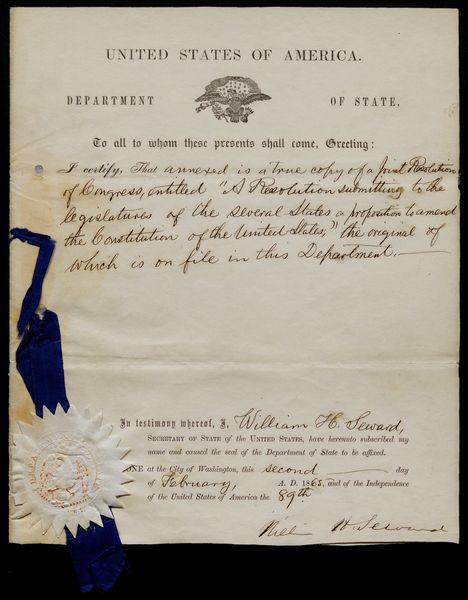 UNITED STATES OF AMERICA.
DEPARTMENT OF STATE.
To all to whom these presents shall come, Greeting:
I certify, That annexed is a true copy of a Joint Resolution
of Congress, entitled "A Resolution submitting to the
legislatures of the several States a proposition to amend
the Constitution of the United States," the original of
which is on file in this Department.
In testimony whereof, I, William H. Seward,
SECRETARY OF STATE OF THE UNITED STATES, have hereunto subscribed my
name and caused the seal of the Department of State to be affixed.
DONE at the City of Washington, this second day
of February, A. D. 1865, and of the Independence
of the United States of America the 89th.
William H. Seward